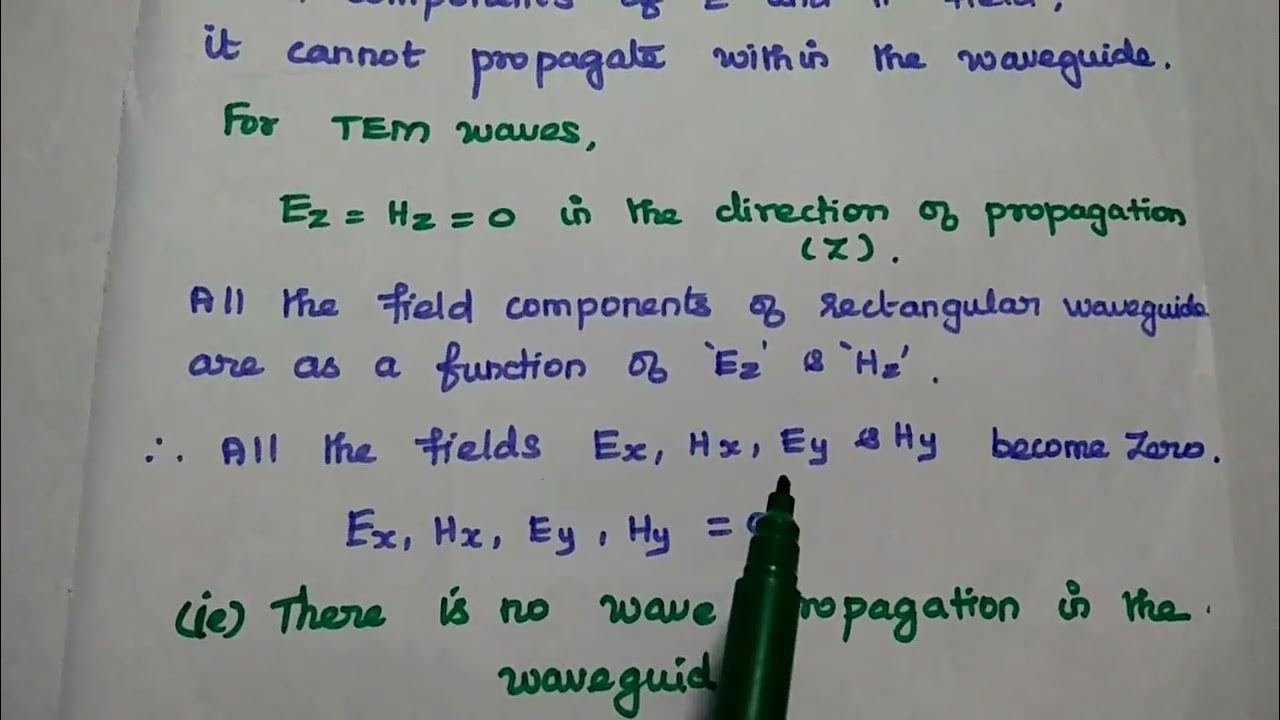 components of E and H field,
it cannot propagate within the waveguide.
For TEM waves,
Ez = Hz = 0 in the direction of propagation
(Z).
All the field components of rectangular waveguide
are as a function of 'Ez' & 'Hz'.
∴ All the fields Ex, Hx, Ey & Hy become Zero.
Ex, Hx, Ey, Hy =
(ie) There is no wave propagation in the
waveguid